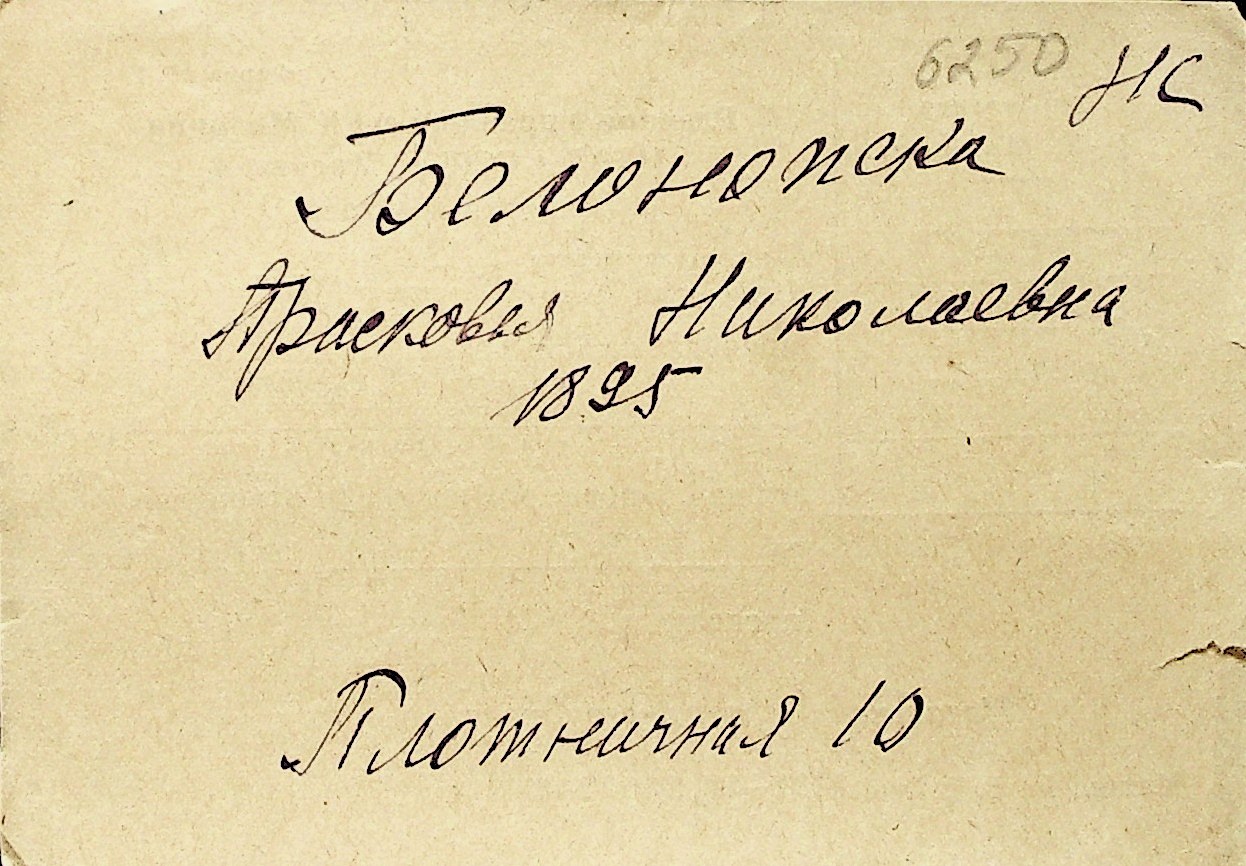 6250 НС
Белонопска
Прасковья Николаевна
1895
Плотничная 10